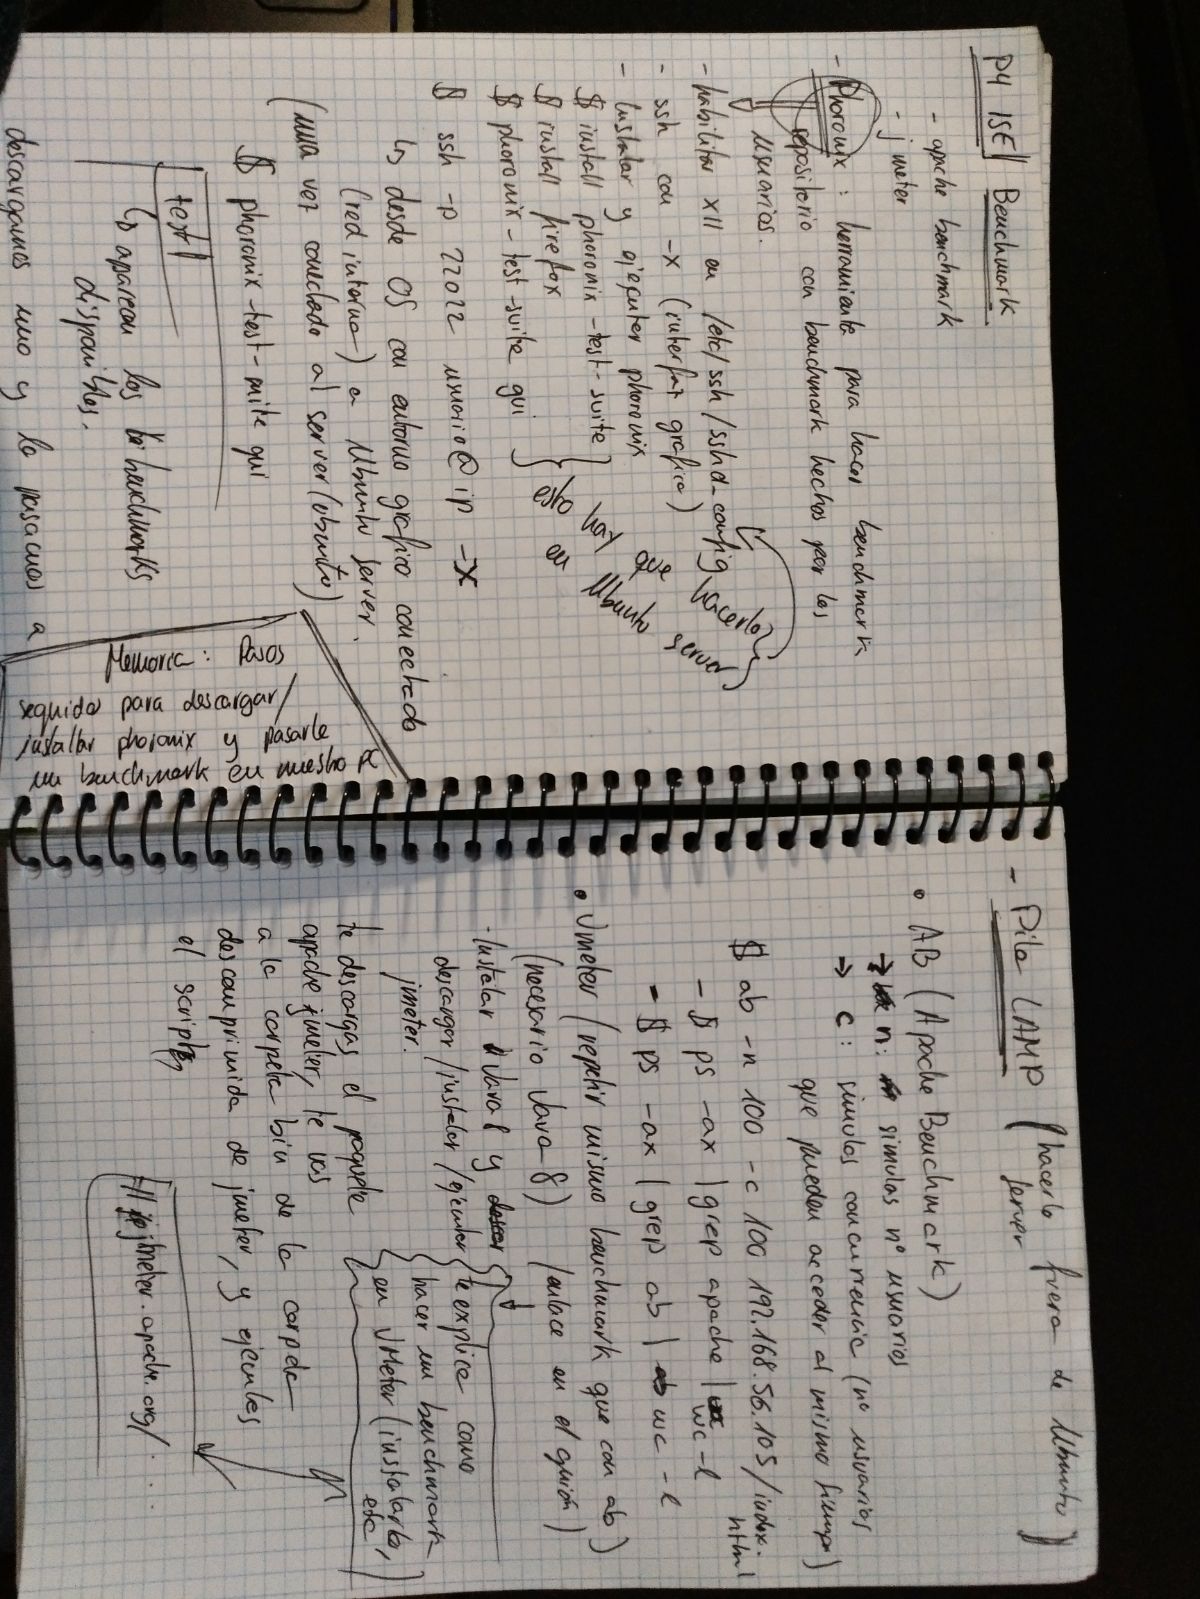 P4 ISE Benchmark
- apache benchmark
- jmeter
- Phoronix : herramienta para hacer benchmark
repositorio con benchmark hechos por los
usuarios.
- habilitar X11 en /etc/ssh/sshd_config
- ssh con -X (interfaz grafica)
- Instalar y ejecutar phoronix
$ install phoronix-test-suite
$ install firefox
$ phoronix-test-suite gui
esto hay que hacerlo
en Ubuntu server
$ ssh -p 22022 usuario@ip -X
↳ desde OS con entorno grafico conectado
(red interna) a Ubuntu Server.
(una vez conectado al server (ubuntu)
$ phoronix-test-suite gui
↳ aparecen los benchmarks
disponibles.
test
descargamos uno y lo pasamos a
Memoria: Pasos
seguidos para descargar/
instalar phoronix y pasarle
un benchmark en nuestro PC
- Pila LAMP (hacerlo fuera de Ubuntu
server)
• AB (Apache Benchmark)
→ n: simulas nº usuarios
→ c: simulas concurrencia (nº usuarios
que pueden acceder al mismo tiempo)
$ ab -n 100 -c 100 192.168.56.105/index.
html
- $ ps -ax | grep apache | wc -l
- $ ps -ax | grep ab | wc -l
• Jmeter (repetir mismo benchmark que con ab)
(necesario Java 8) (enlace en el guión)
- Instalar Java 8 y
descargar/instalar/ejecutar
jmeter.
te explica como
hacer un benchmark
en JMeter (instalarlo,
etc)
te descargas el paquete
apache jmeter, te vas
a la carpeta bin de la carpeta
descomprimida de jmeter, y ejecutas
el script
jmeter.apache.org/...